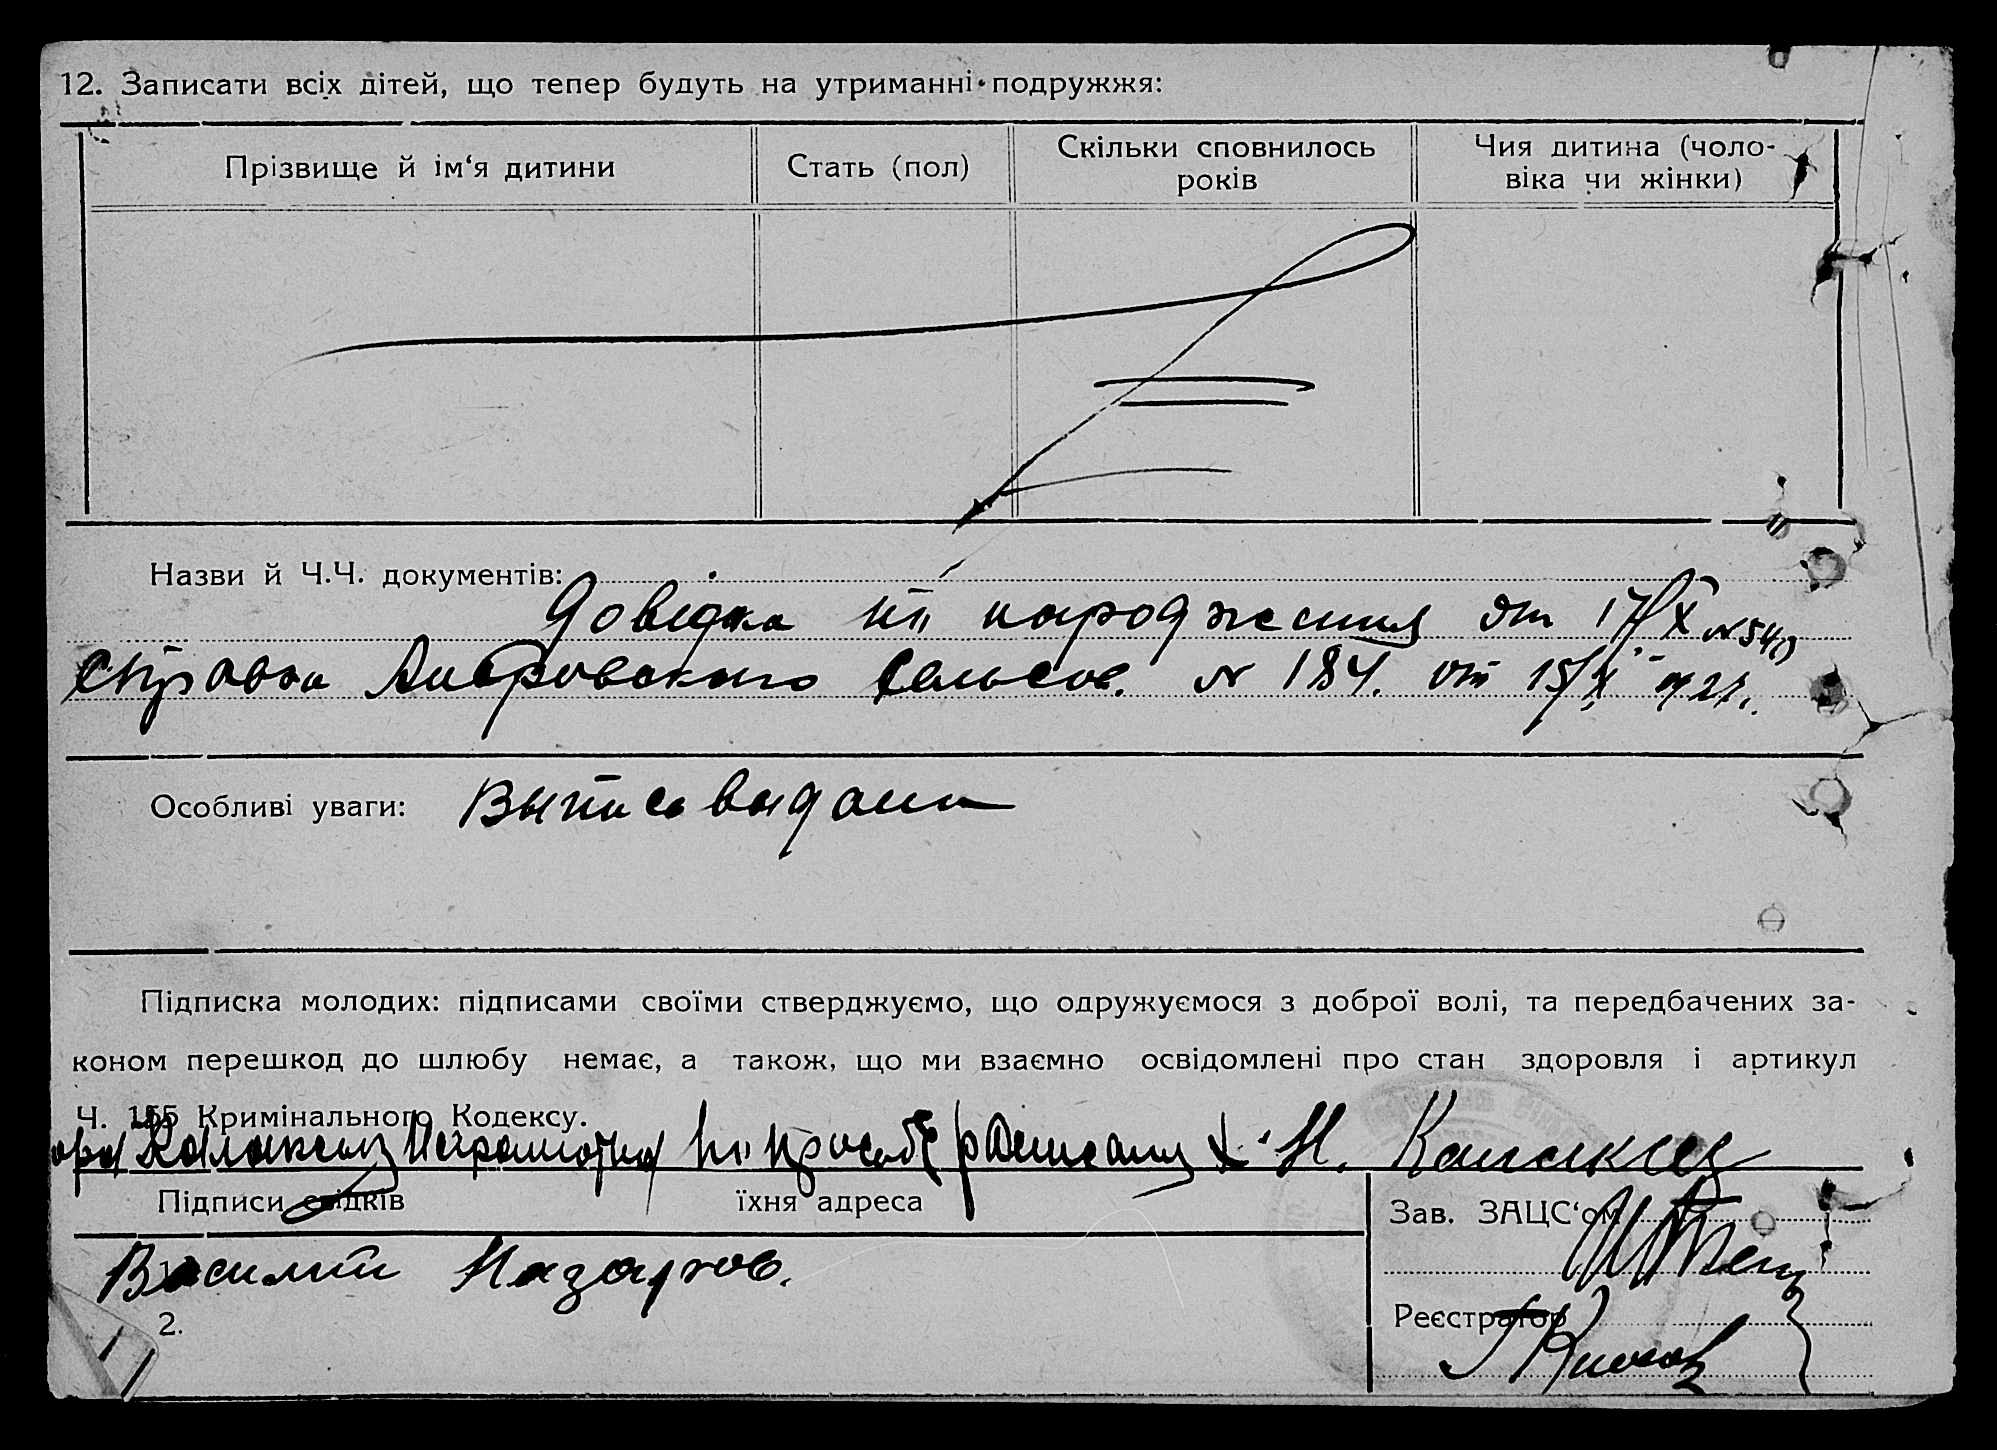 12. Записати всіх дітей, що тепер будуть на утриманні подружжя:
Прізвище й ім‘я дитини
Стать (пол)
Скільки сповнилось
років
Чия дитина (чоло-
віка чи жінки)
Назви й Ч.Ч. документів:
Довідка народження от 17/X N 540
справка сельсов. N 184. от 15/X
Особливі уваги: Выпись выдана
Підписка молодих: підписами своїми стверджуємо, що одружуємося з доброї волі, та передбачених за-
коном перешкод до шлюбу немає, а також, що ми взаємно освідомлені про стан здоровля і артикул
Ч. 155 Кримінального Кодексу.
неграмотна просьбе Н.
Підписи свідків
їхня адреса
Зав. ЗАЦС‘ом
1.
Василий Назартов.
2.
Реєстратор